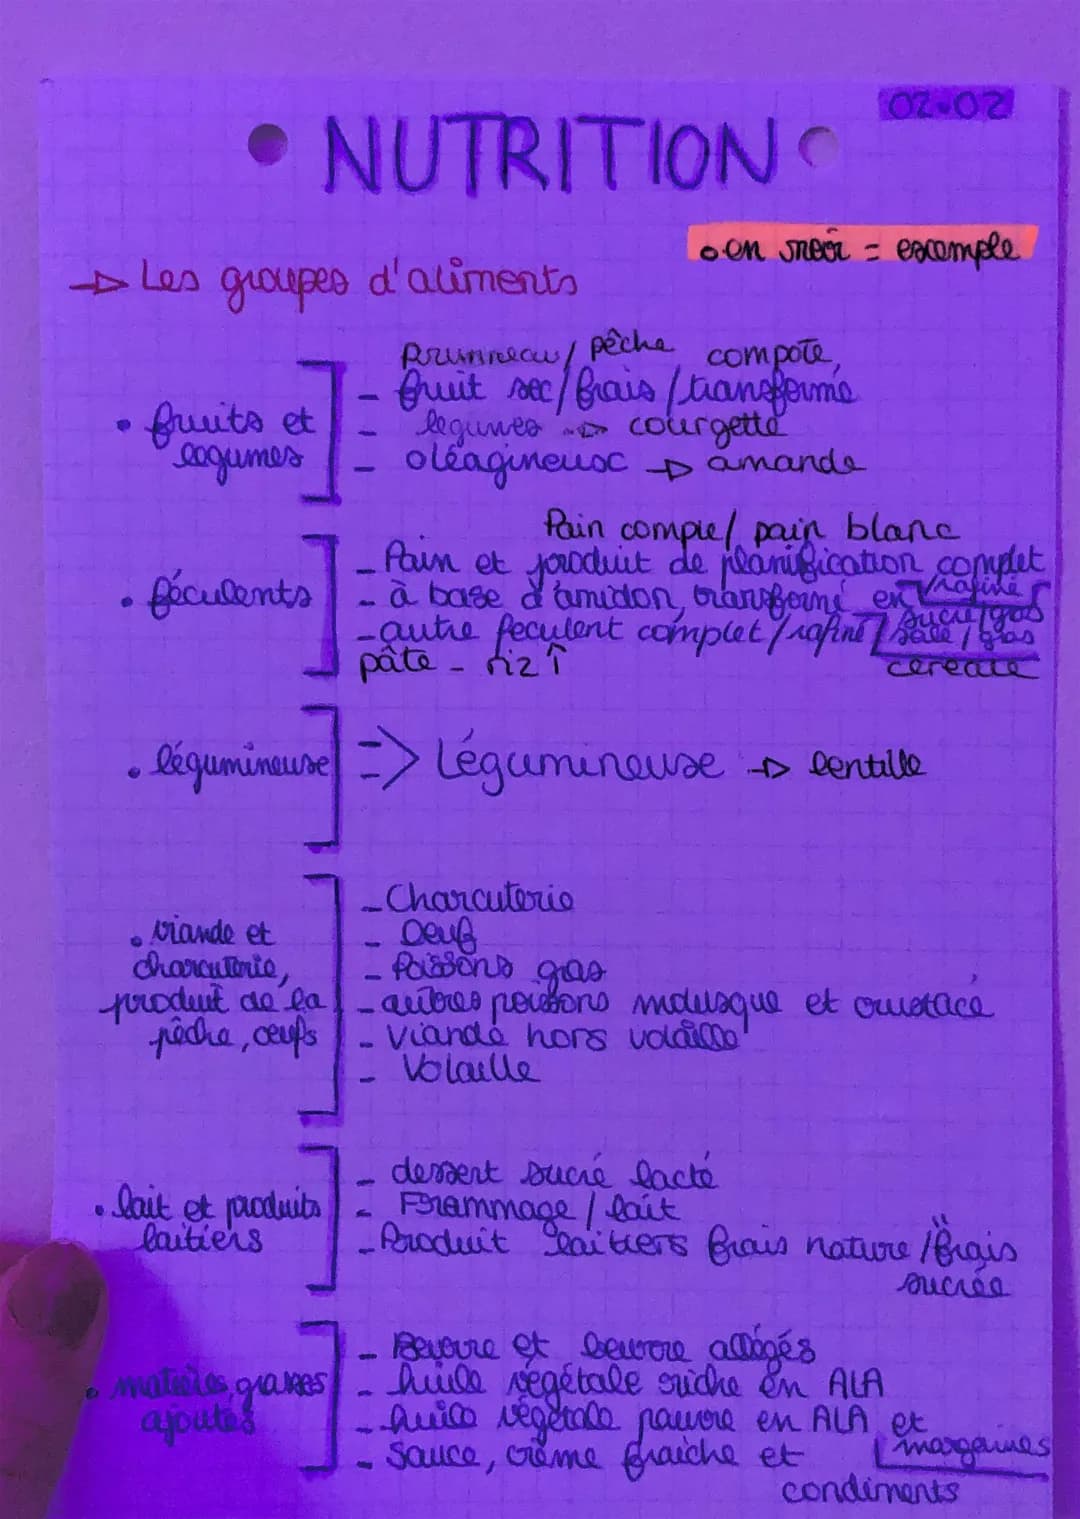 02.02
NUTRITION
• en noir = exemple
→ Les groupes d'aliments
Prunneau / pêche compote,
• fruits et légumes
- fruit sec / frais / transformé
- légumes → courgette
- oléagineux → amande
Pain comple / pain blanc
• féculents
- Pain et produit de planification complet / rafiné
- à base d'amidon, transformé en sucré / gras salé / gras
- autre feculent complet / rafiné
pâte - riz ↑
céréale
• légumineuse
=> Légumineuse → lentille
• viande et charcuterie, produit de la pêche, œufs
- Charcuterie
- Oeuf
- Poissons gras
- autres poissons molusque et crustacé
- Viande hors volaille
- Volaille
• lait et produits laitiers
- dessert sucré lacté
- Frammage / lait
- Produit laitiers frais nature / frais
sucrée
• matières grasses ajoutés
- Beurre et beurre allégés
- huile végétale riche en ALA
- huile végétale pauvre en ALA et margarines
- Sauce, crème fraiche et
condiments